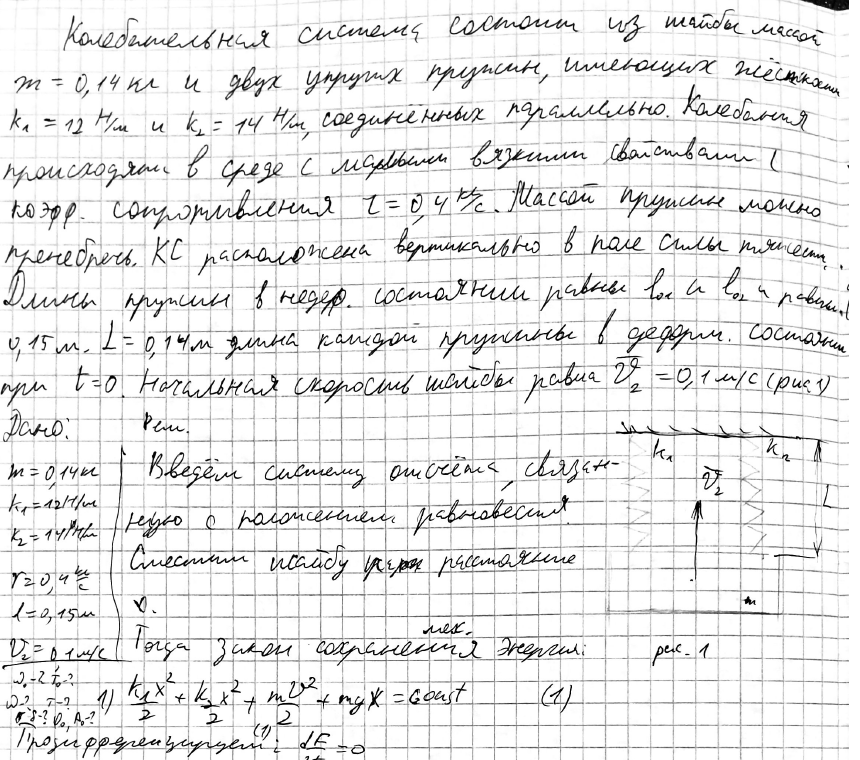 Колебательная система состоит из шайбы массой
m = 0,14 кг и двух упругих пружин, имеющих жёсткости
k₁ = 12 Н/м и k₂ = 14 Н/м, соединённых параллельно. Колебания
происходят в среде с малыми вязкими свойствами (
коэфф. сопротивления r = 0,4 кг/с. Массой пружин можно
пренебречь. КС расположена вертикально в поле силы тяжести.
Длины пружин в недеф. состоянии равны l₀₁ и l₀₂ и равны
0,15 м. L = 0,14 м длина каждой пружины в деформ. состоянии
при t = 0. Начальная скорость шайбы равна v̄₂ = 0,1 м/с (рис. 1)
Дано: Реш.
m = 0,14 кг
k₁ = 12 Н/м
k₂ = 14 Н/м
r = 0,4 кг/с
l = 0,15 м
v₂ = 0,1 м/с
ω₀-? T₀-?
ω-? T-?
δ-? A₀-?
Введём систему отсчёта, связан-
ную с положением равновесия.
Сместим шайбу расстояние
Тогда закон сохранения мех. энергии:
1) k₁x²/2 + k₂x²/2 + mv²/2 + mgx = const (1)
Продифференцируем (1): dE/dt = 0
k₁ k₂
v̄₂
L
m
рис. 1